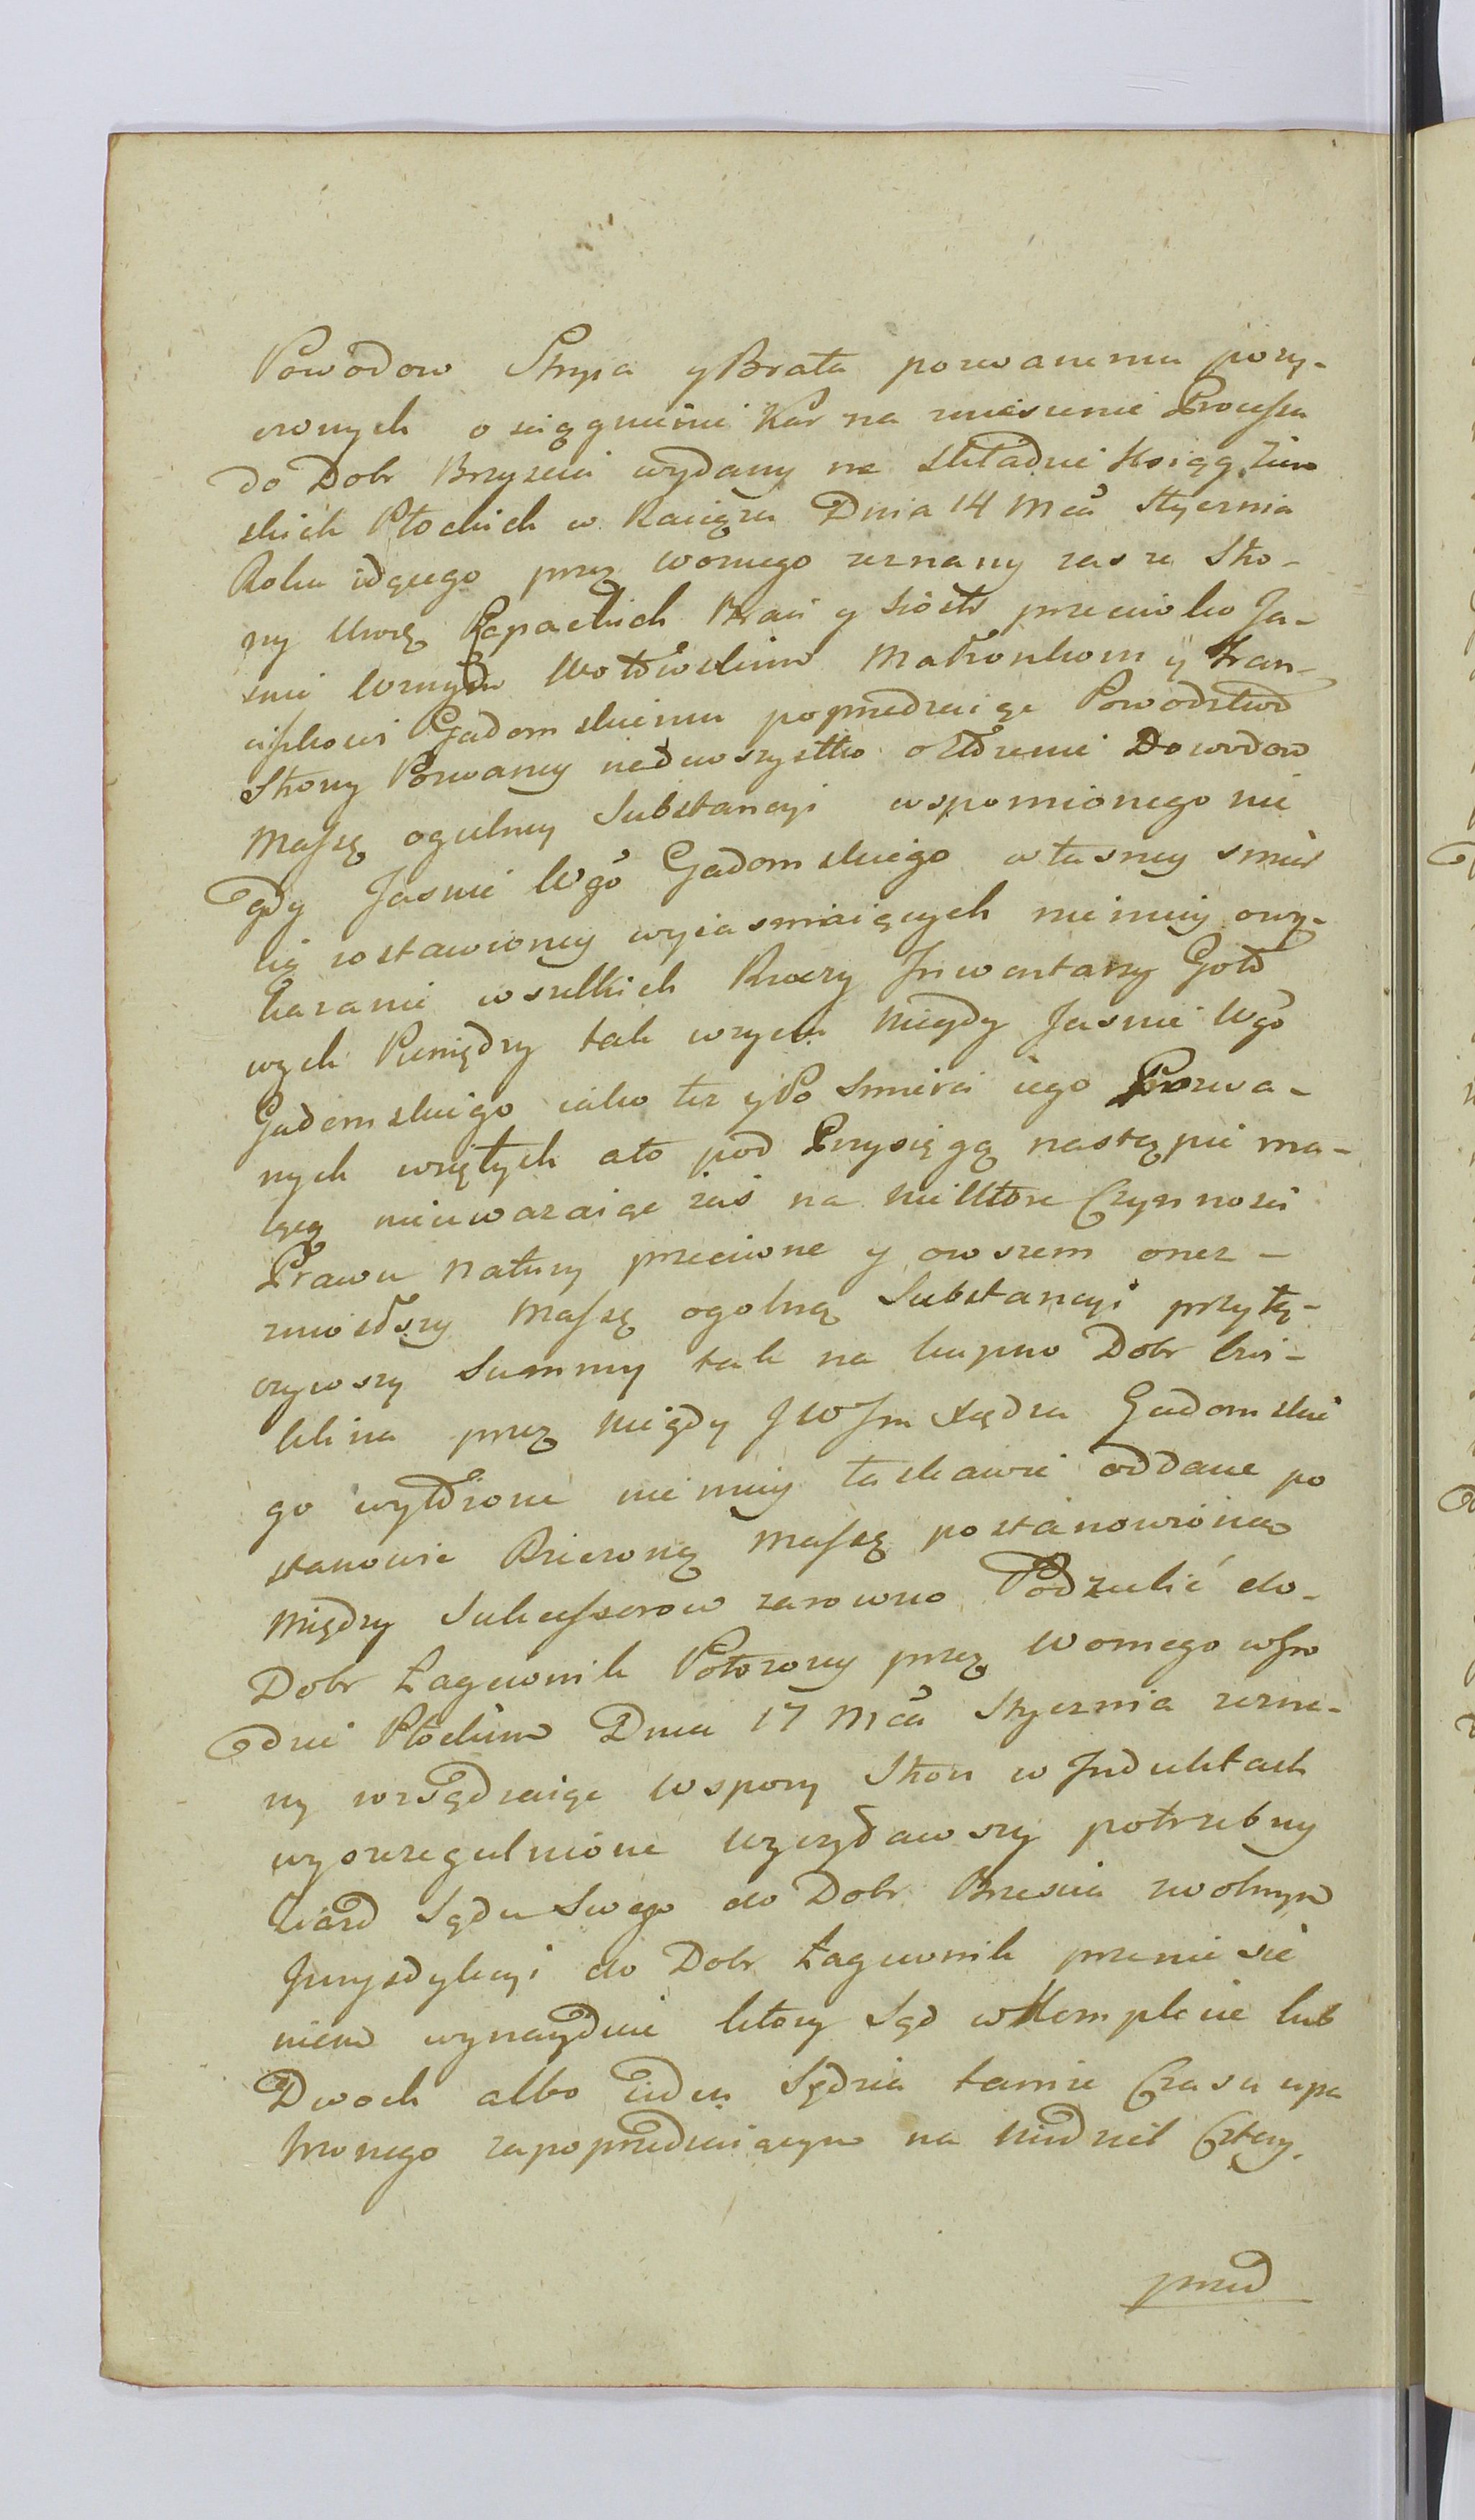 Powodow Stryia y Brata pozwanemu pozy-
czonych o sciągnienie Kar na zniesienie Processu
do Dobr Brzyscia wydany na składzie Ksiąg Ziem
skich Płockich w Raciążu Dnia 14 Mca Stycznia
Roku idącego przez woznego zeznany zas ze Stro-
ny Urodz Rzpackich Braci y Siostr przeciwko Ja-
snie Wznym Wołowskim Małżonkom y Fran-
ciszkowi Gadomskiemu poprzedzaiąc Powodztwo
Strony Pozwaney nadewszystko o złożenie Dowodow
Massę ogulney Substancyi wspomionego nie
gdy Jasnie Wgo Gadomskiego własney smier
cią zostawioney wyiasniaiących nie mniey owy-
kazanie wszelkich Rzeczy Inwentarzy Goto
wych Pieniędzy tak wzyciu niegdy Jasnie Wgo
Gadomskiego iako tez y Po Smierci iego Pozwa-
nych wziętych a to pod Przysięgą nastąpic ma-
iącą nieuwazaiąc zas na niektore Czynnosci
Prawu natury przeciwne y owszem onez-
zniosłszy Massę ogolną Substancyi przyłą-
czywszy Summy tak na kupno Dobr Cwi-
klina przez niegdy JW Jm Xiędza Gadomskie
go wyłożone nie mniey łaskawie oddane po
stanowic Rzeczoną Massę postanowioną
między Sukcessorow zarowno Podzielić do-
Dobr Łaguwnik Połozony przez Woznego wGro
dzie Płockim Dnia 17 Mca Stycznia zezna-
ny wsądzaiąc wspory Stron w Induktach
wyszczegulnione Wyczytawszy potrzebny
Ziazd Sądu Swego do Dobr Brzescia zwolnym
Juryzdykcyi do Dobr Łaguwnik przeniesie
niem wynayduie ktory Sąd wKomplecie lub
Dwoch albo ieden Sędzia tamze Czasu upa
trzonego zapoprzedzaiącym na Niedziel Cztery.
przed